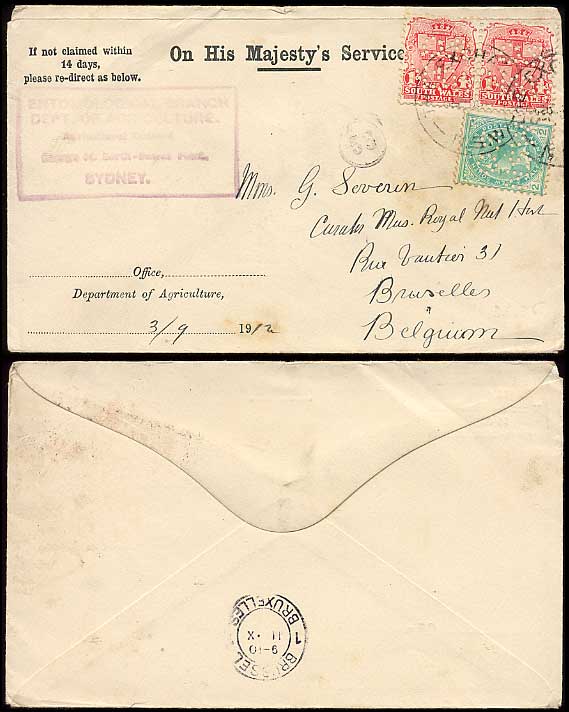 If not claimed within
14 days,
please re-direct as below.
On His Majesty's Service
SOUTH WALES
POSTAGE
SOUTH WALES
POSTAGE
DEPT. OF AGRICULTURE,
SYDNEY.
Mons. G. Severin
Curator Mus. Royal Nat Hist
Rue Vautier 31
Bruxelles
Belgium
Office,
Department of Agriculture,
3/9 1912
BRUXELLES
1
11 X
9-10
BRUSSEL